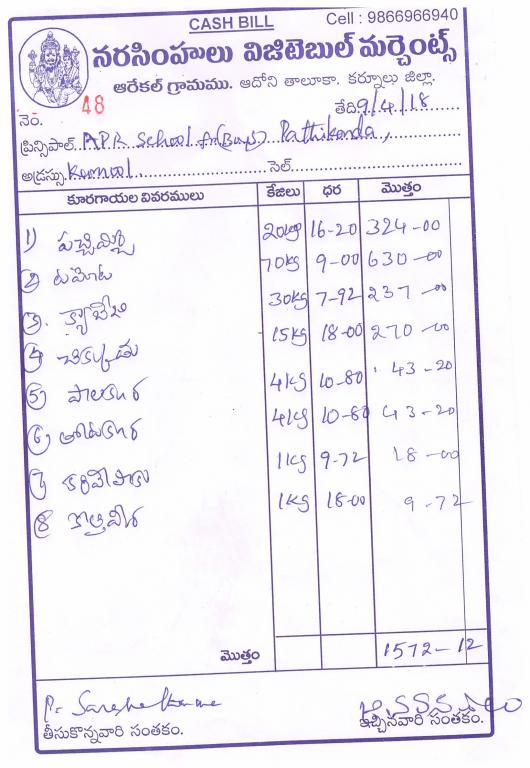 CASH BILL Cell : 9866966940
నరసింహులు విజిటెబుల్ మర్చెంట్స్
ఆరేకల్ గ్రామము. ఆదోని తాలూకా. కర్నూలు జిల్లా.
నెం. 48 తేది 9/4/18
ప్రిన్సిపాల్. A.P.R School (Boys) Pathikonda,
అడ్రస్సు Kurnool. సెల్.
కూరగాయల వివరములు కేజీలు ధర మొత్తం
1) పచ్చిమిర్చి 20kg 16-20 324-00
2 టమోట 70kg 9-00 630-00
3. క్యాబేజి 30kg 7-92 237-00
4 చిక్కుడు 15kg 18-00 270-00
5) పాలకూర 4kg 10-80 43-20
6) తోటకూర 4kg 10-80 43-20
7 కరివేపాకు 1kg 9-72 18-00
8 కొత్తిమీర 1kg 18-00 9-72
మొత్తం 1572-12
తీసుకొన్నవారి సంతకం. ఇచ్చినవారి సంతకం.